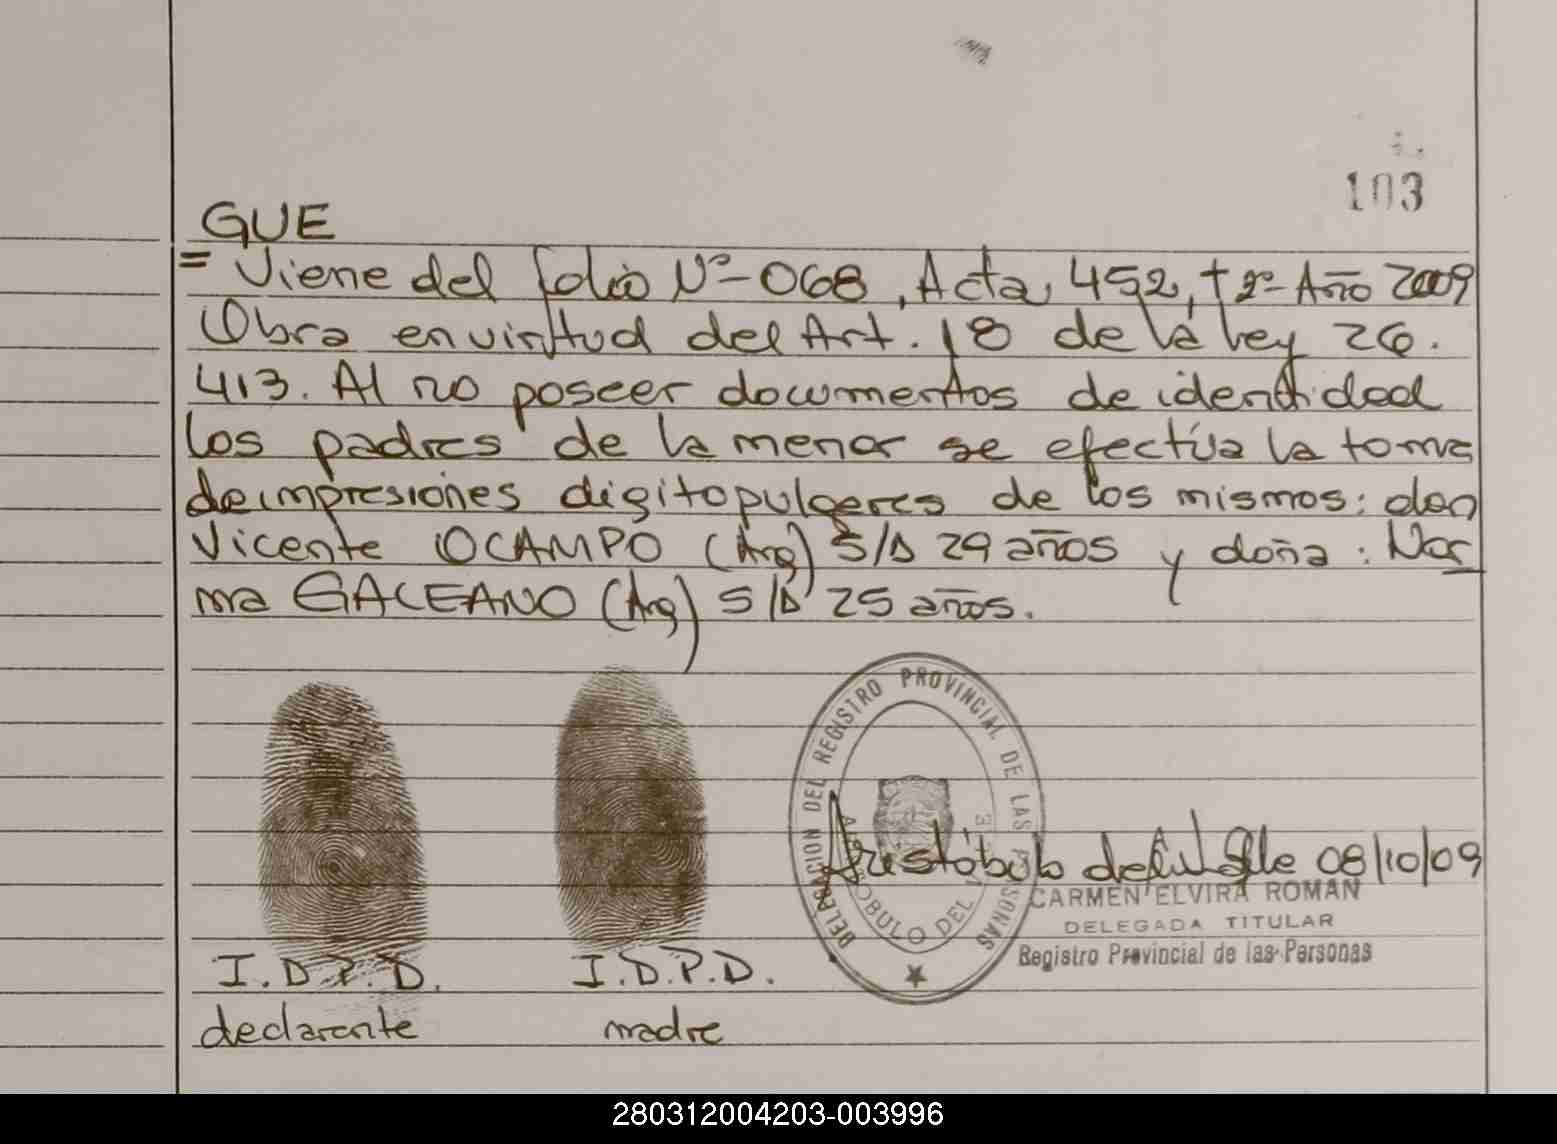 103
GUE
= Viene del folio Nº-068, Acta, 452, t 2º- Año 2009
Obra en virtud del Art. 18 de la ley 26.
413. Al no poseer documentos de identidad
los padres de la menor se efectúa la toma
de impresiones digitopulgares de los mismos: don
Vicente OCAMPO (Arg) S/D 29 años y doña: Nor
ma GALEANO (Arg) S/D 25 años.
DELEGACION DEL REGISTRO PROVINCIAL DE LAS PERSONAS
Aristóbulo del Valle 08/10/09
CARMEN ELVIRA ROMAN
DELEGADA TITULAR
Registro Provincial de las Personas
I.D.P.D. I.D.P.D.
declarante madre
280312004203-003996